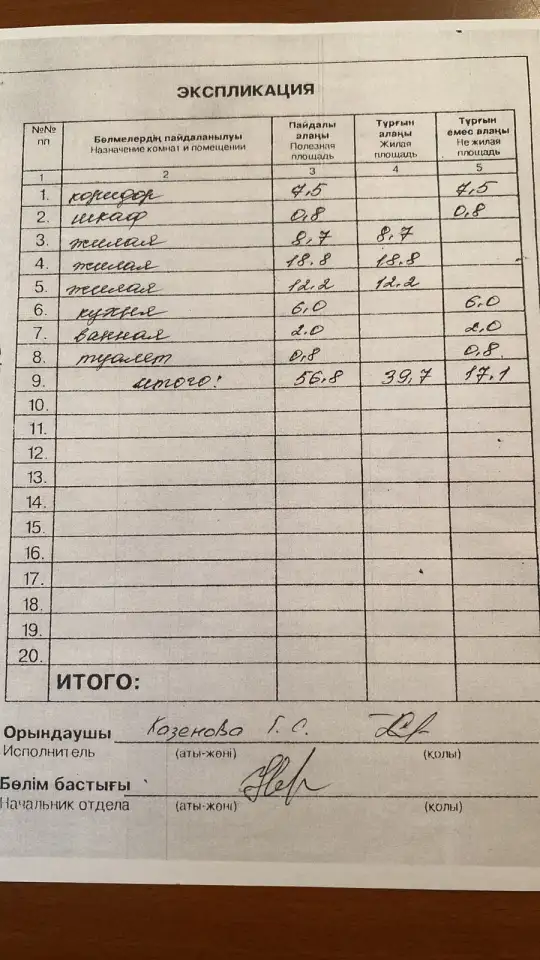 ЭКСПЛИКАЦИЯ
№№ пп | Бөлмелердің пайдаланылуы Назначение комнат и помещении | Пайдалы алаңы Полезная площадь | Тұрғын алаңы Жилая площадь | Тұрғын емес алаңы Не жилая площадь
1 2 3 4 5
1. коридор 7,5 7,5
2. шкаф 0,8 0,8
3. жилая 8,7 8,7
4. жилая 18.8 18.8
5. жилая 12.2 12.2
6. кухня 6,0 6.0
7. ванная 2.0 2,0
8. туалет 0,8 0,8.
9. итого: 56,8 39,7 17.1
10.
11.
12.
13.
14.
15.
16.
17.
18.
19.
20.
ИТОГО:
Орындаушы Казенова Г. С.
Исполнитель (аты-жөні) (қолы)
Бөлім бастығы
Начальник отдела (аты-жөні) (қолы)